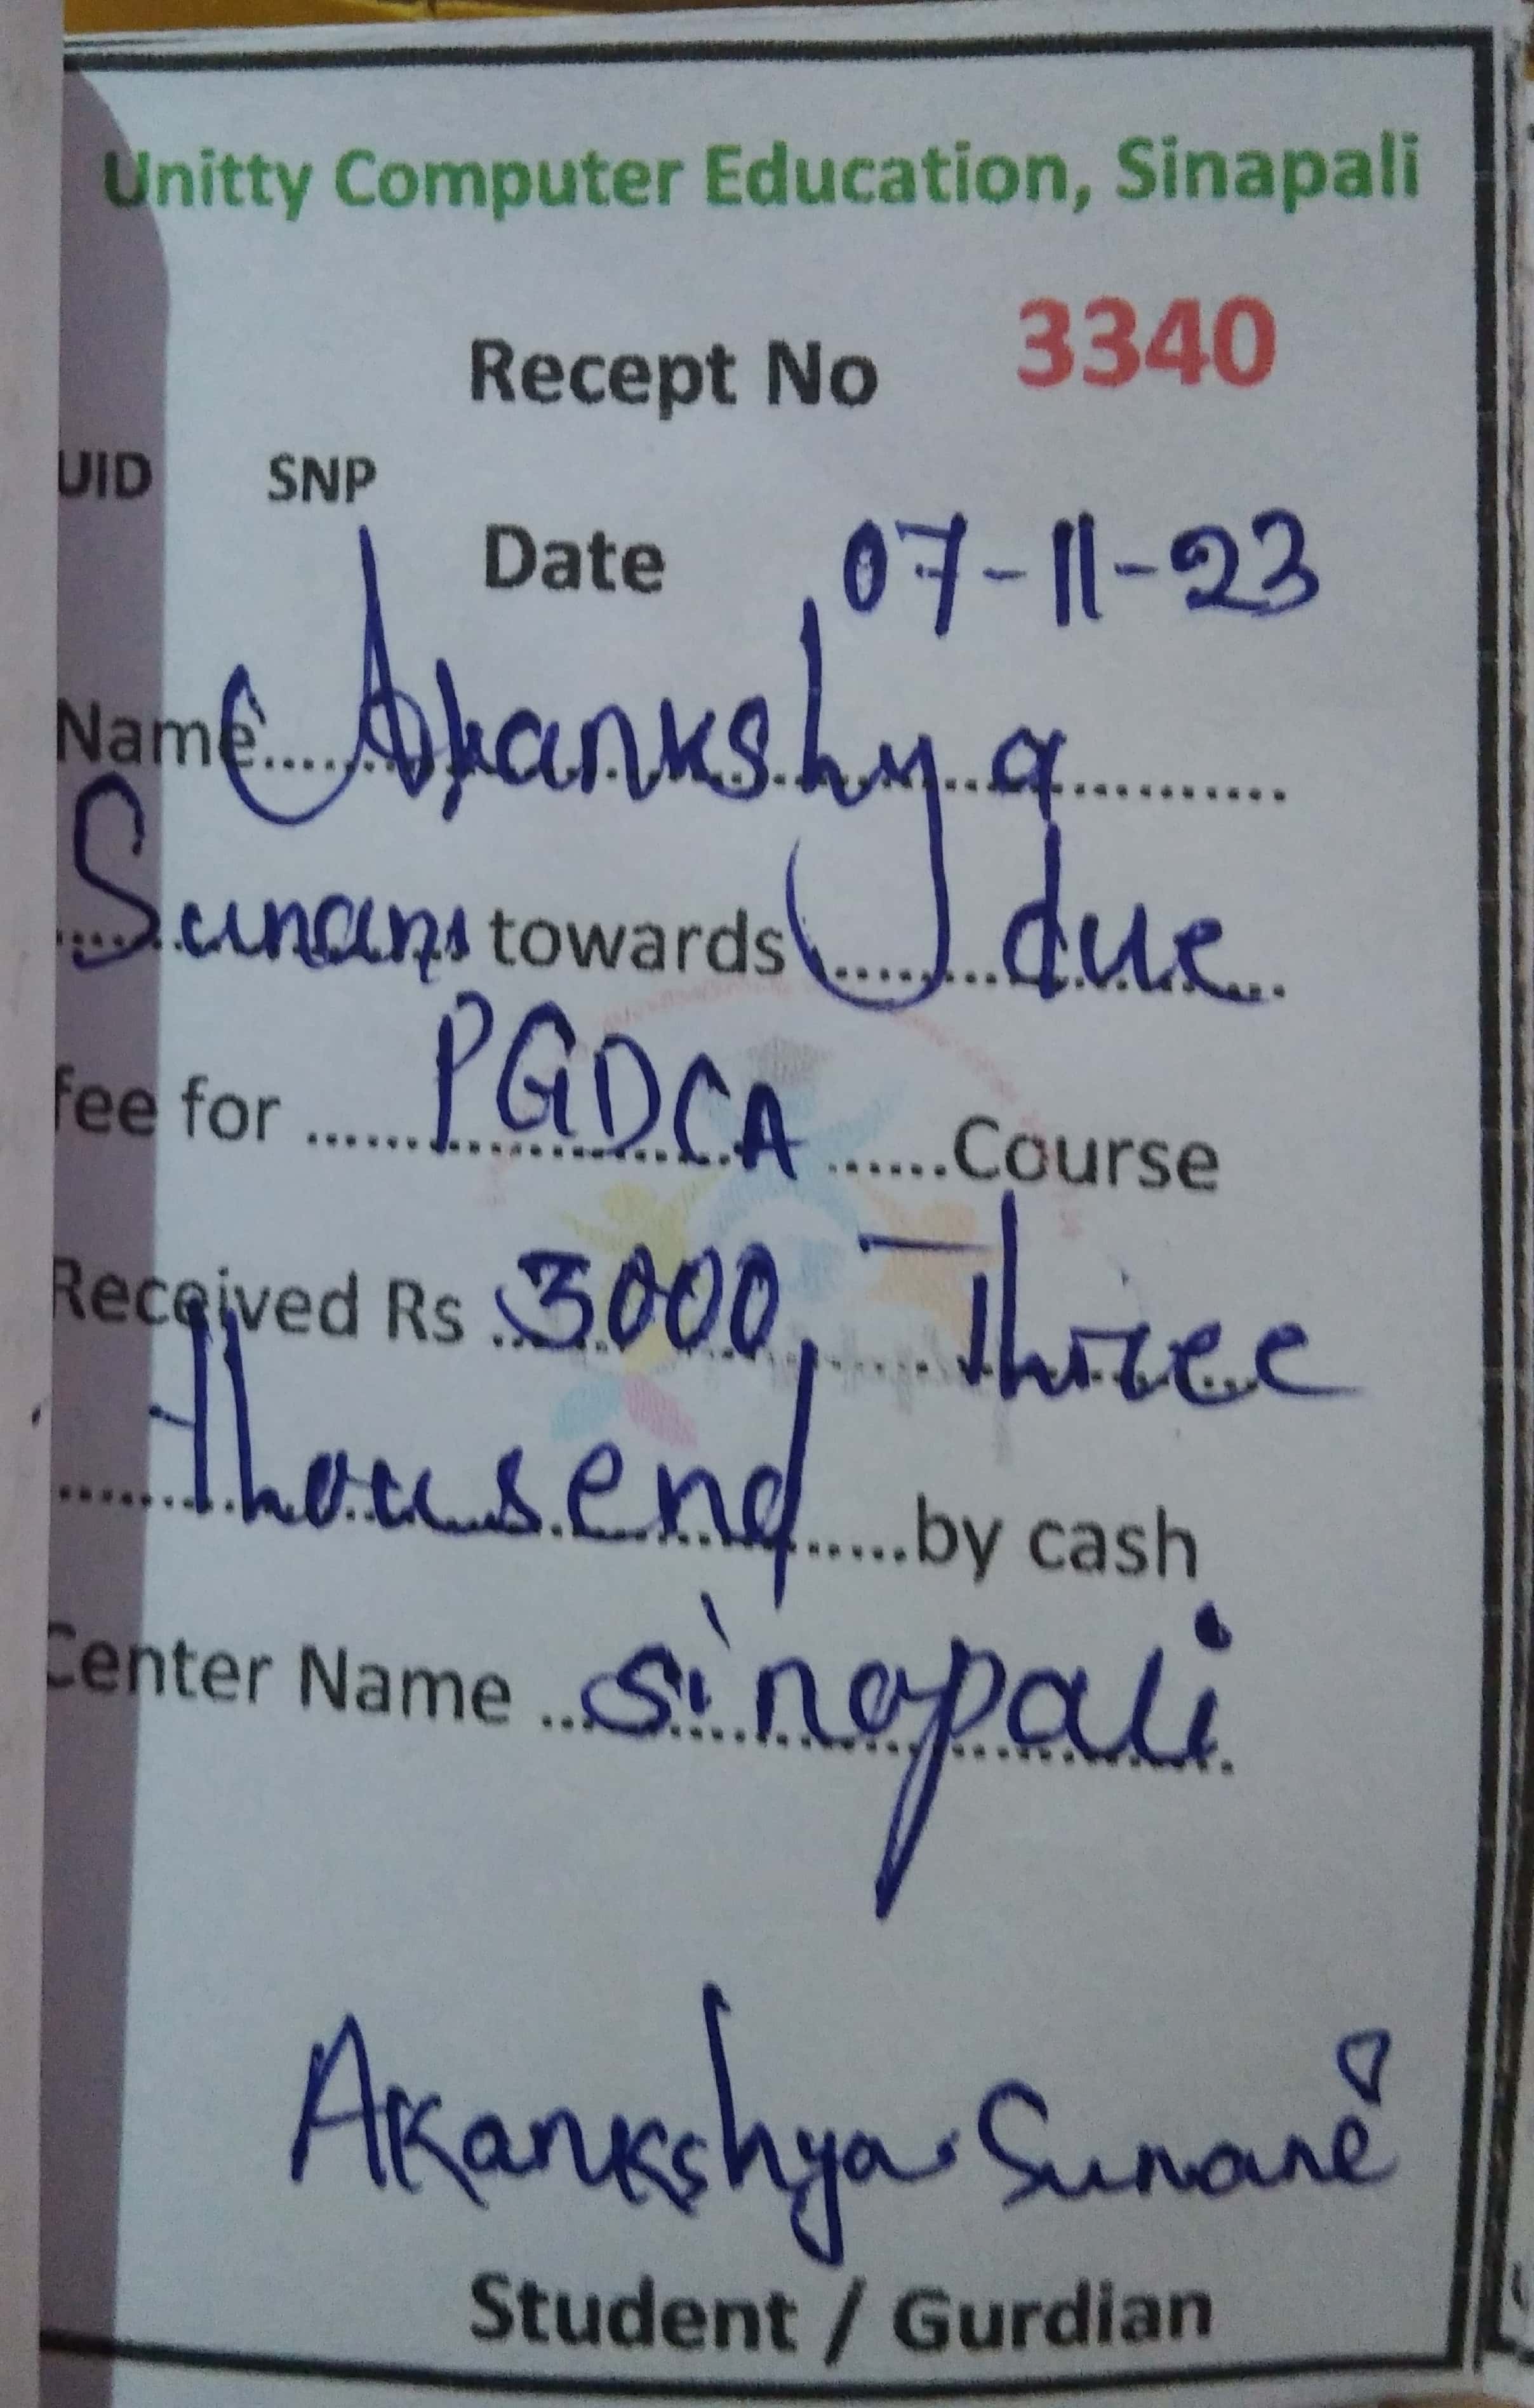 Unitty Computer Education, Sinapali
Recept No 3340
UID SNP
Date 07-11-23
Name Akankshya
Sunani towards due
fee for PGDCA Course
Received Rs 3000, Three
Thousend by cash
Center Name Sinapali
Akankshya Sunani
Student / Gurdian